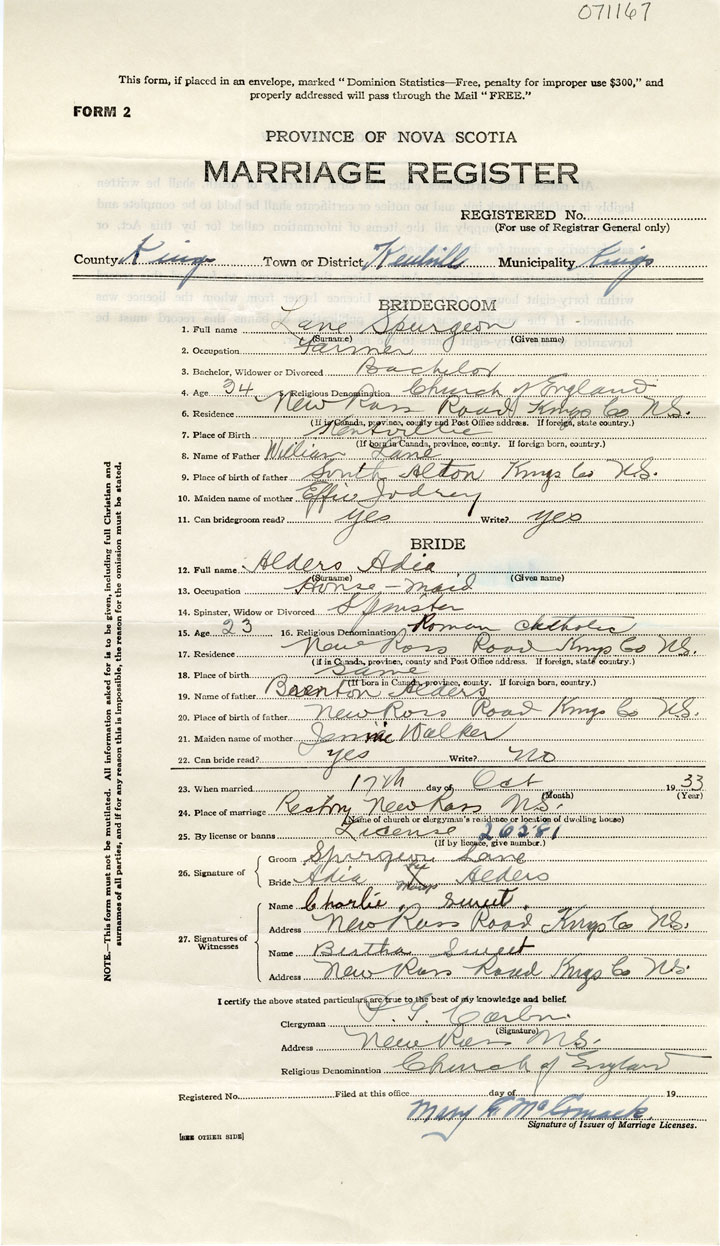 071167
This form, if placed in an envelope, marked "Dominion Statistics—Free, penalty for improper use $300," and
properly addressed will pass through the Mail "FREE."
FORM 2
PROVINCE OF NOVA SCOTIA
MARRIAGE REGISTER
REGISTERED No.
(For use of Registrar General only)
County Kings Town or District Municipality Kings
BRIDEGROOM
1. Full name Lane Spurgeon
(Surname) (Given name)
2. Occupation Farmer
3. Bachelor, Widower or Divorced Bachelor
4. Age 34 5. Religious Denomination Church of England
6. Residence New Ross Road Kings Co N.S.
(If in Canada, province, county and Post Office address. If foreign, state country.)
7. Place of Birth Kentville
(If born in Canada, province, county. If foreign born, country.)
8. Name of Father William Lane
9. Place of birth of father South Alton Kings Co N.S.
10. Maiden name of mother Effie Jodrey
11. Can bridegroom read? yes Write? yes
BRIDE
12. Full name Alders Adia
(Surname) (Given name)
13. Occupation House-maid
14. Spinster, Widow or Divorced Spinster
15. Age 23 16. Religious Denomination Roman Catholic
17. Residence New Ross Road Kings Co N.S.
(If in Canada, province, county and Post Office address. If foreign, state country.)
18. Place of birth Same
(If born in Canada, province, county. If foreign born, country.)
19. Name of father Brenton Alders
20. Place of birth of father New Ross Road Kings Co N.S.
21. Maiden name of mother Jennie Walker
22. Can bride read? yes Write? no
23. When married 17th day of Oct 19 33
(Month) (Year)
24. Place of marriage Rectory New Ross N.S.
(Name of church or clergyman's residence or location of dwelling house)
25. By license or banns License 26281
(If by licence, give number.)
26. Signature of
Groom Spurgeon Lane
Bride Adia X Alders
27. Signatures of Witnesses
Name Charlie Sweet
Address New Ross Road Kings Co N.S.
Name Bertha Sweet
Address New Ross Road Kings Co N.S.
I certify the above stated particulars are true to the best of my knowledge and belief.
Clergyman
(Signature)
Address New Ross N.S.
Religious Denomination Church of England
Registered No. Filed at this office day of 19
Mary
Signature of Issuer of Marriage Licenses.
[SEE OTHER SIDE]
NOTE.—This form must not be mutilated. All information asked for is to be given, including full Christian and
surnames of all parties, and if for any reason this is impossible, the reason for the omission must be stated.